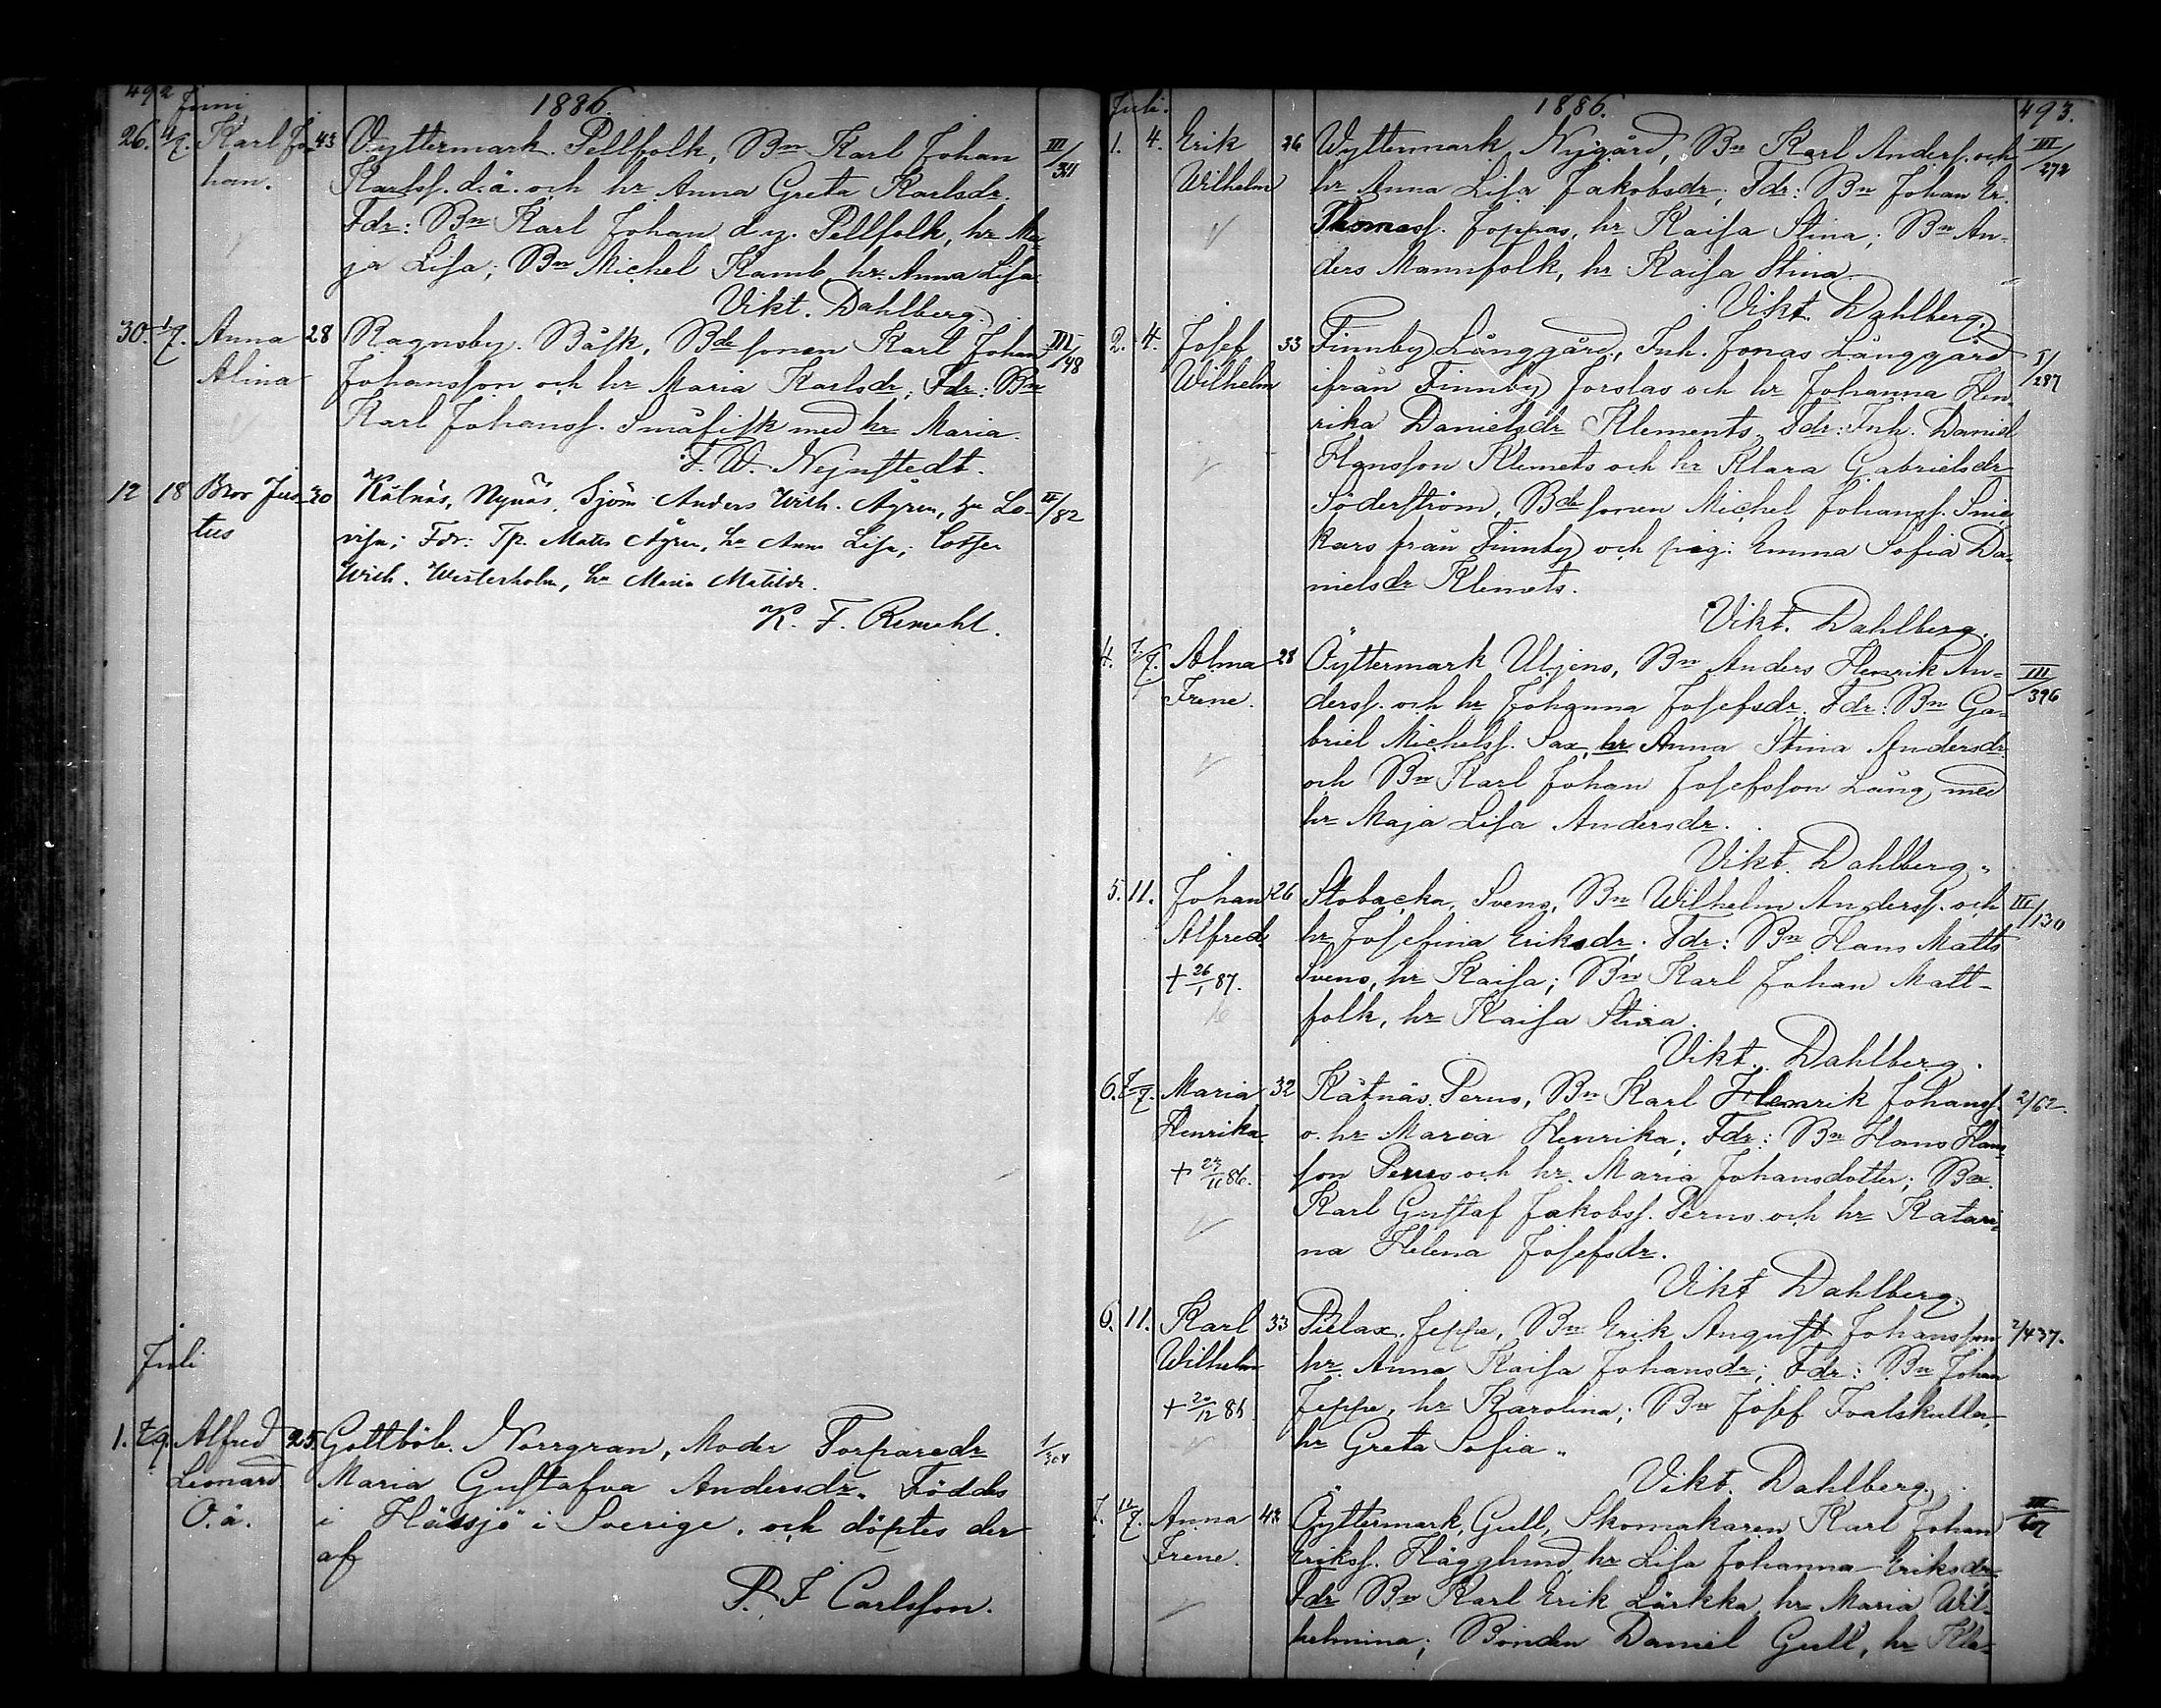 492
Juni
1886.
26. 4/7. Karl Jo- 43 Öyttermark. Pellfolk, Bn Karl Johan III/311
han. Karlss. d.ä. och hr Anna Greta Karlsdr.
Fdr: Bn Karl Johan d.y. Pellfolk, hr Ma-
ja Lisa; Bn Michel Kamb, hr Anna Lisa
Vikt. Dahlberg.
30. 1/7. Anna 28 Ragnsby. Båsk, Bdesonen Karl Johan III/148
Alina Johansson och hr Maria Karlsdr; Fdr: Bn
Karl Johanss. Småfisk med hr Maria.
F. W. Nejnstedt.
12 18 Bror Jus- 30 Kåtnäs, Nynäs, Sjöm Anders Wilh. Ågren, hu Lo- II/82
tus visa; Fdr: Tp. Matts Ågren, hu Anna Lisa; Lotsen
Wilh. Westerholm, hu Maria Matilda.
K. F. Remahl.
Juli
1. 7/9. Alfred 25. Gottböle. Norrgran, Moder Torparedr 1/304
Leonard Maria Gustafva Andersdr. Föddes
O.ä. i Hässjö i Sverige, och döptes der
af
P. F. Carlsson.
Juli.
1886.
493.
1. 4. Erik 26 Wyttermark, Nygård, Bn Karl Anderss. och III/272
Wilhelm hr Anna Lisa Jakobsdr; Fdr: Bn Johan Er.
Thomass. Joppas, hr Kaisa Stina; Bn An-
ders Mannfolk, hr Kaisa Stina
Vikt. Dahlberg.
2. 4. Josef 33 Finnby Långgård, Inh. Jonas Långgård 5/287
Wilhelm ifrån Finnby Forslas och hr Johanna Hen-
rika Danielsdr Klements, Fdr: Inh. Daniel
Hansson Klemets och hr Klara Gabrielsdr
Söderström, Bdesonen Michel Johanss. Smic-
kars från Finnby och pig: Emma Sofia Da-
nielsdr Klemets.
Vikt. Dahlberg.
4. 7/7. Alma 28 Öyttermark Uljens, Bn Anders Henrik An- III/396
Irene. derss. och hr Johanna Josefsdr. Fdr: Bn Ga-
briel Michelss. Sax, hr Anna Stina Andersdr
och Bn Karl Johan Josefsson Lång, med
hr Maja Lisa Andersdr.
Vikt. Dahlberg.
5. 11. Johan 26 Stobacka, Svens, Bn Wilhelm Anderss. och III/130
Alfred hr Josefina Eriksdr. Fdr: Bn Hans Matts
+ 26/1 87. Svens, hr Kaisa; Bn Karl Johan Matt-
folk, hr Kaisa Stina.
Vikt. Dahlberg.
6. 7/7. Maria 32 Kåtnäs. Perus, Bn Karl Henrik Johanss. 2/62.
Henrika o. hr Maria Henrika; Fdr: Bn Hans Hans-
+ 27/11 86. son Perus och hr. Maria Johansdotter; Bn.
Karl Gustaf Jakobss. Perus och hr Katari-
na Helena Josefsdr.
Vikt Dahlberg.
6. 11. Karl 33 Pielax. Jeppe, Bn Erik August Johansson, 2/437.
Wilhelm hr. Anna Kaisa Johansdr; Fdr: Bn Johan
+ 20/12 86 Jeppe, hr Karolina; Bn Josef Ivalskulla,
hr Greta Sofia.
Vikt. Dahlberg.
7. 11/7. Anna 42 Öyttermark, Gull, Skomakaren Karl Johan III/67
Irene. Erikss. Hägglund, hr Lisa Johanna Eriksdr
Fdr Bn Karl Erik Lärkka, hr Maria Wil-
helmina; Bonden Daniel Gull, hr Kla-